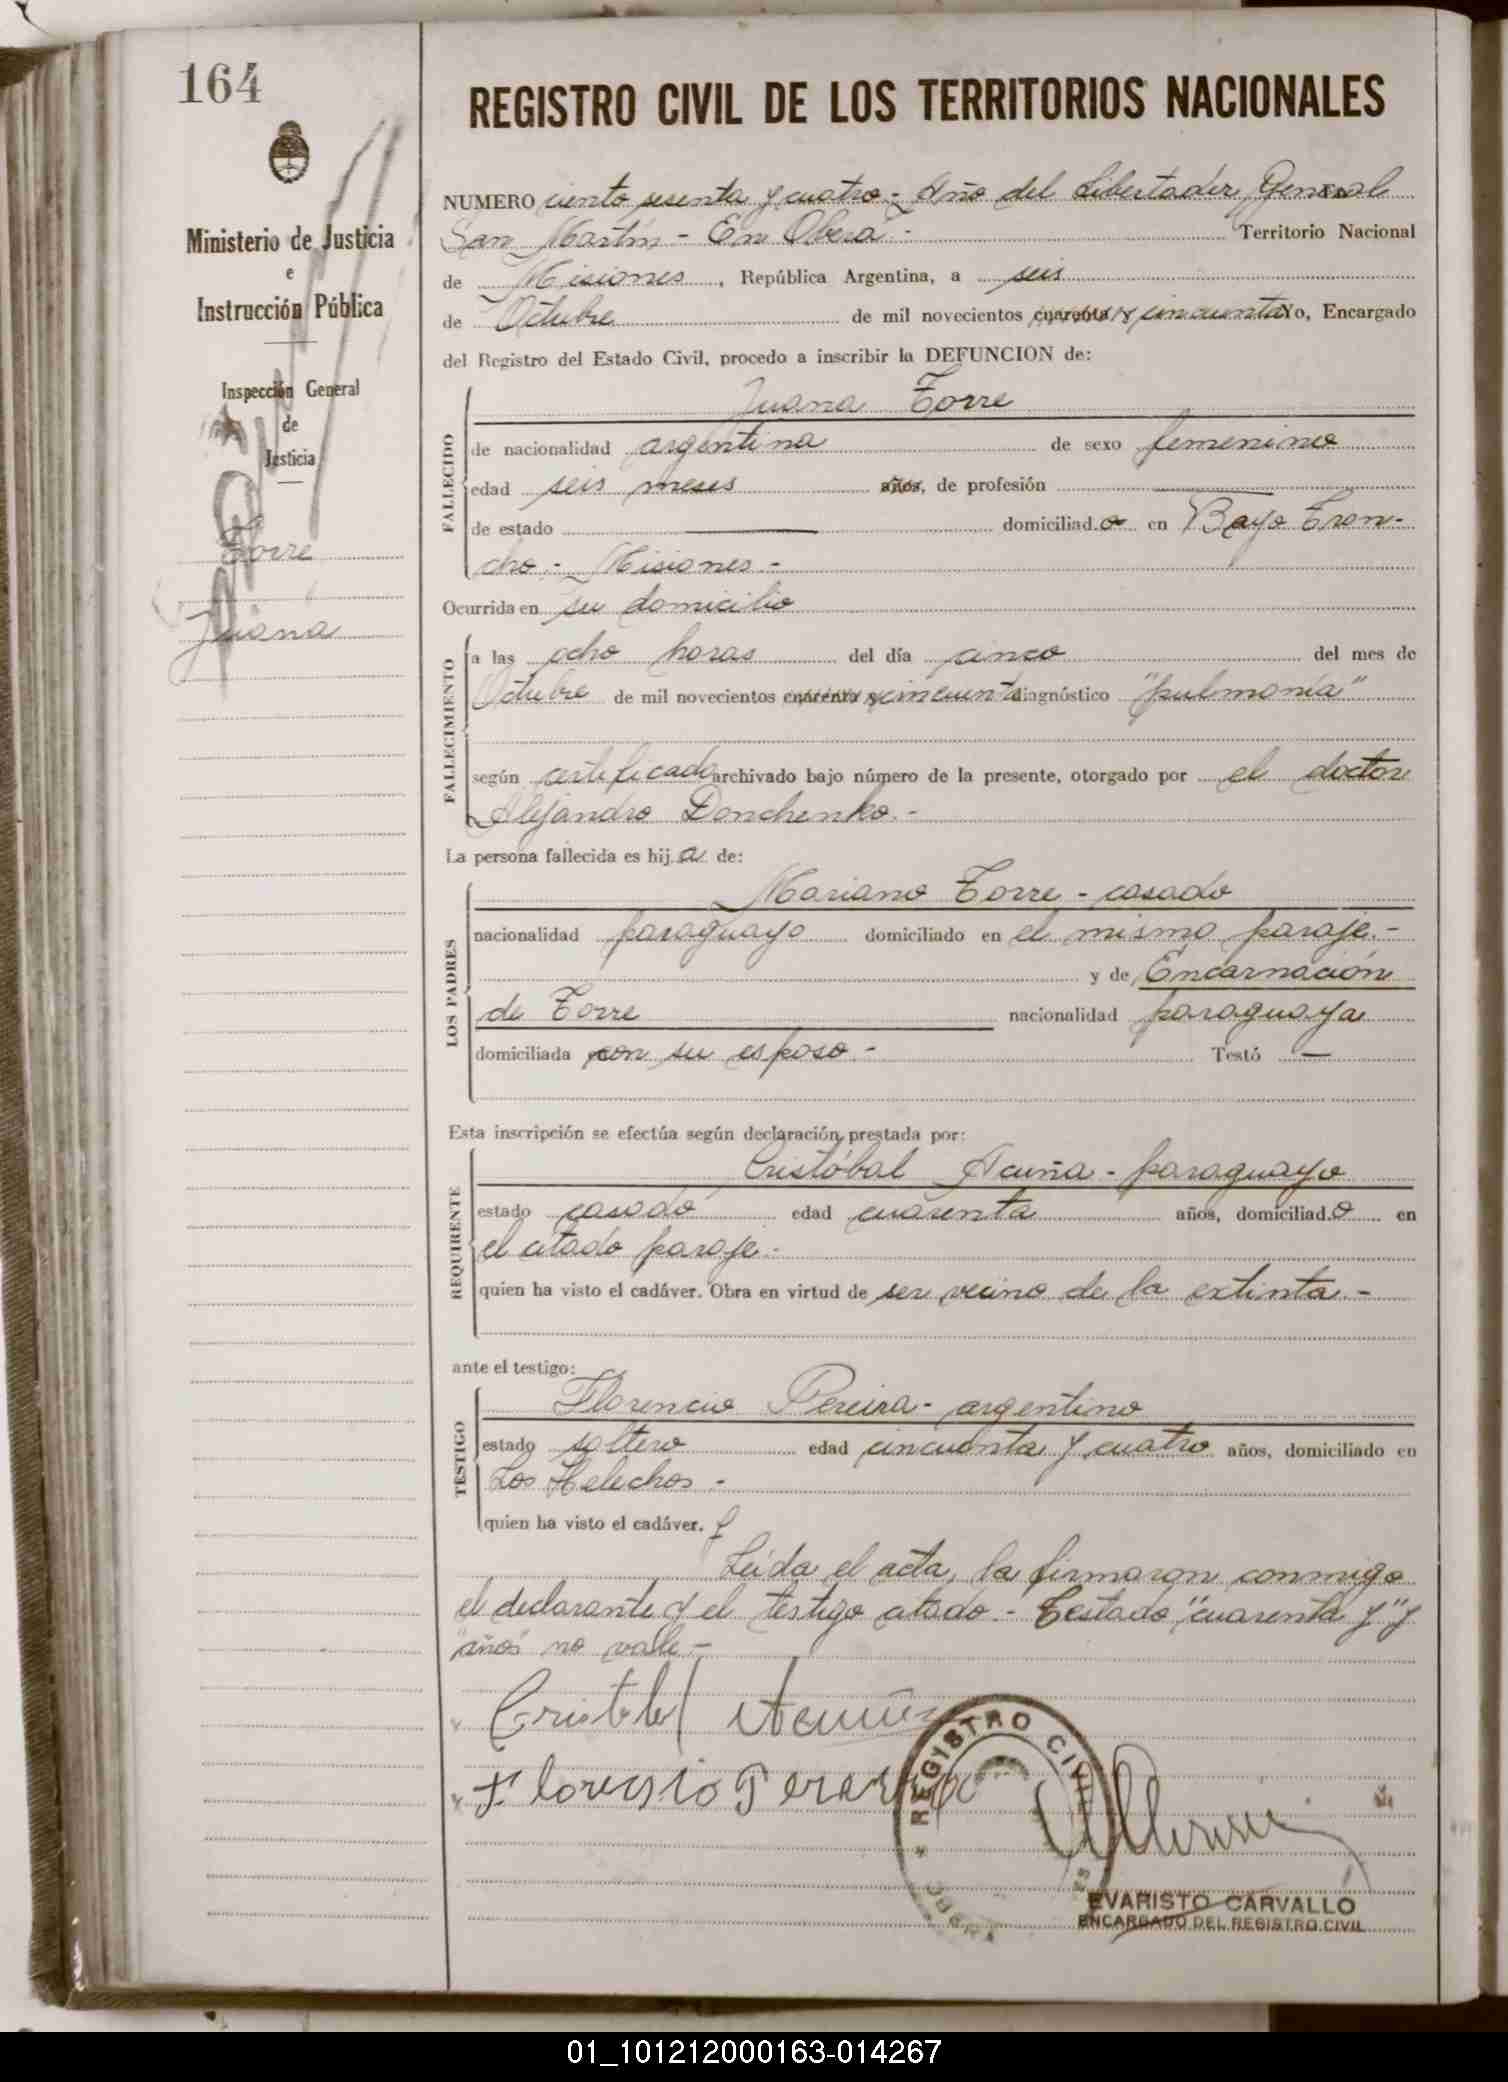 164
Ministerio de Justicia
e
Instrucción Pública
Inspección General
de
Justicia
Torre
Juana
REGISTRO CIVIL DE LOS TERRITORIOS NACIONALES
NUMERO ciento sesenta y cuatro.- Año del Libertador General
San Martín - En Obera - Territorio Nacional
de Misiones, República Argentina, a seis
de Octubre de mil novecientos cuarenta y cincuenta Yo, Encargado
del Registro del Estado Civil, procedo a inscribir la DEFUNCION de:
FALLECIDO
Juana Torre
de nacionalidad argentina de sexo femenino
edad seis meses años, de profesión
de estado domiciliad a en Bayo Tron-
cho.- Misiones -
Ocurrida en su domicilio
FALLECIMIENTO
a las ocho horas del día cinco del mes de
Octubre de mil novecientos cuarenta y cincuenta diagnóstico "pulmonía"
según certificado archivado bajo número de la presente, otorgado por el doctor
Alejandro Donchenko.-
La persona fallecida es hij a de:
LOS PADRES
Mariano Torre - casado
nacionalidad paraguayo domiciliado en el mismo paraje.-
y de Encarnación
de Torre nacionalidad paraguaya
domiciliada con su esposo - Testó —
Esta inscripción se efectúa según declaración prestada por:
REQUIRENTE
Cristóbal Acuña - paraguayo
estado casado edad cuarenta años, domiciliad o en
el citado paraje -
quien ha visto el cadáver. Obra en virtud de ser vecino de la extinta.-
ante el testigo:
TESTIGO
Florencio Pereira - argentino
estado soltero edad cincuenta y cuatro años, domiciliado en
Los Helechos -
quien ha visto el cadáver.
Leída el acta, la firmaron conmigo
el declarante y el testigo citado.- Testado "cuarenta y" y
"años" no vale -
Cristobal Acuña
REGISTRO CIVIL
EVARISTO CARVALLO
ENCARGADO DEL REGISTRO CIVIL
01_101212000163-014267